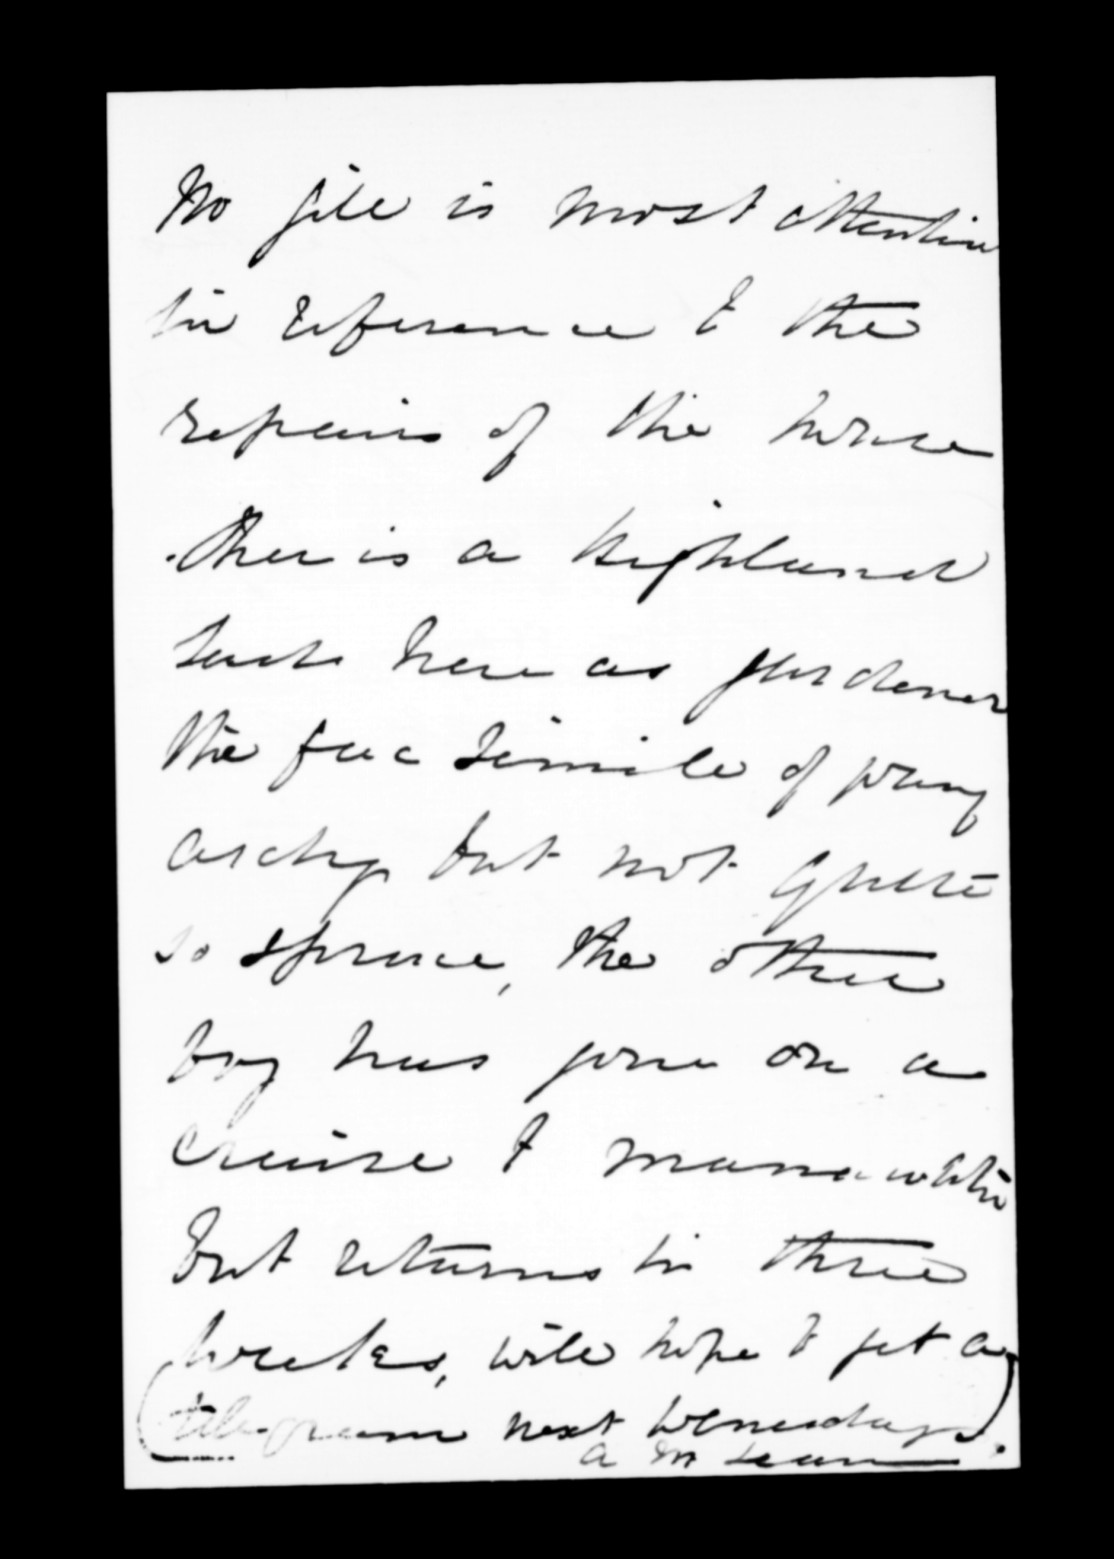 Mr Gill is most attentive
in reference to the
repairs of the house
ther is a highland
lad here as gardener
the fac simile of young
archy but not quite
so spruce, the other
boy has gone on a
cruise to manawatu
but returns in three
weeks, will hope to get a
telegram next Wenesday.
A McLean